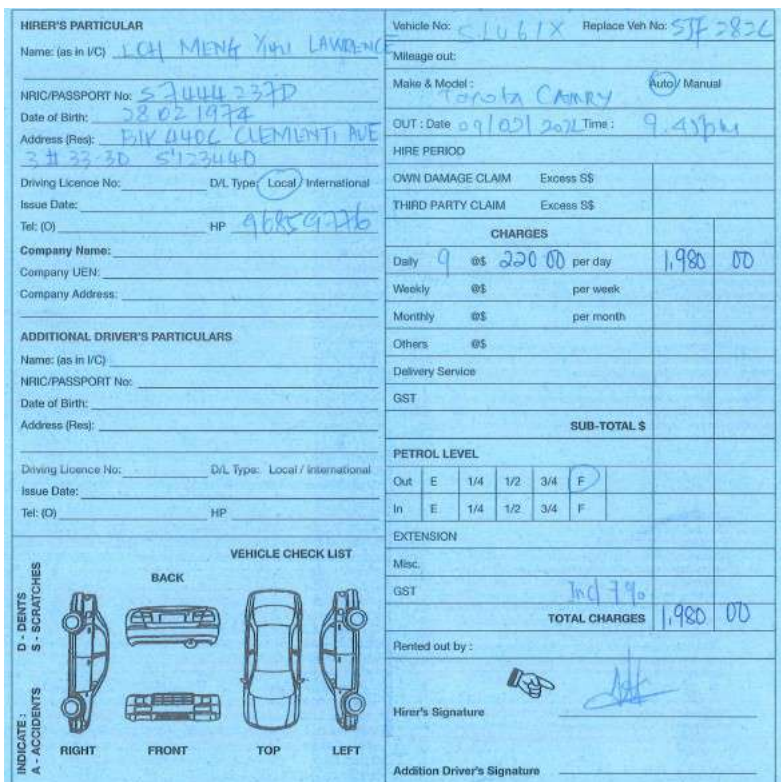 HIRER'S PARTICULAR
Name: (as in I/C) LOH MENG YIHU LAWRENCE
NRIC/PASSPORT No: S7444237D
Date of Birth: 28 02 1974
Address (Res): BIK 440C CLEMENTI AVE
3 # 33-30 S'123440
Driving Licence No: D/L Type: Local / International
Issue Date:
Tel: (O) HP 96859776
Company Name:
Company UEN:
Company Address:
ADDITIONAL DRIVER'S PARTICULARS
Name: (as in I/C)
NRIC/PASSPORT No:
Date of Birth:
Address (Res):
Driving Licence No: D/L Type: Local / International
Issue Date:
Tel: (O) HP
VEHICLE CHECK LIST
BACK
D - DENTS
S - SCRATCHES
INDICATE :
A - ACCIDENTS
RIGHT FRONT TOP LEFT
Vehicle No: Replace Veh No:
Mileage out:
Make & Model : Toyota CAMRY Auto / Manual
OUT : Date Time :
HIRE PERIOD
OWN DAMAGE CLAIM Excess S$
THIRD PARTY CLAIM Excess S$
CHARGES
Daily 9 @$ 220 00 per day 1,980 00
Weekly @$ per week
Monthly @$ per month
Others @$
Delivery Service
GST
SUB-TOTAL $
PETROL LEVEL
Out E 1/4 1/2 3/4 F
In E 1/4 1/2 3/4 F
EXTENSION
Misc.
GST Incl 7%
TOTAL CHARGES 1,980 00
Rented out by :
Hirer's Signature
Addition Driver's Signature